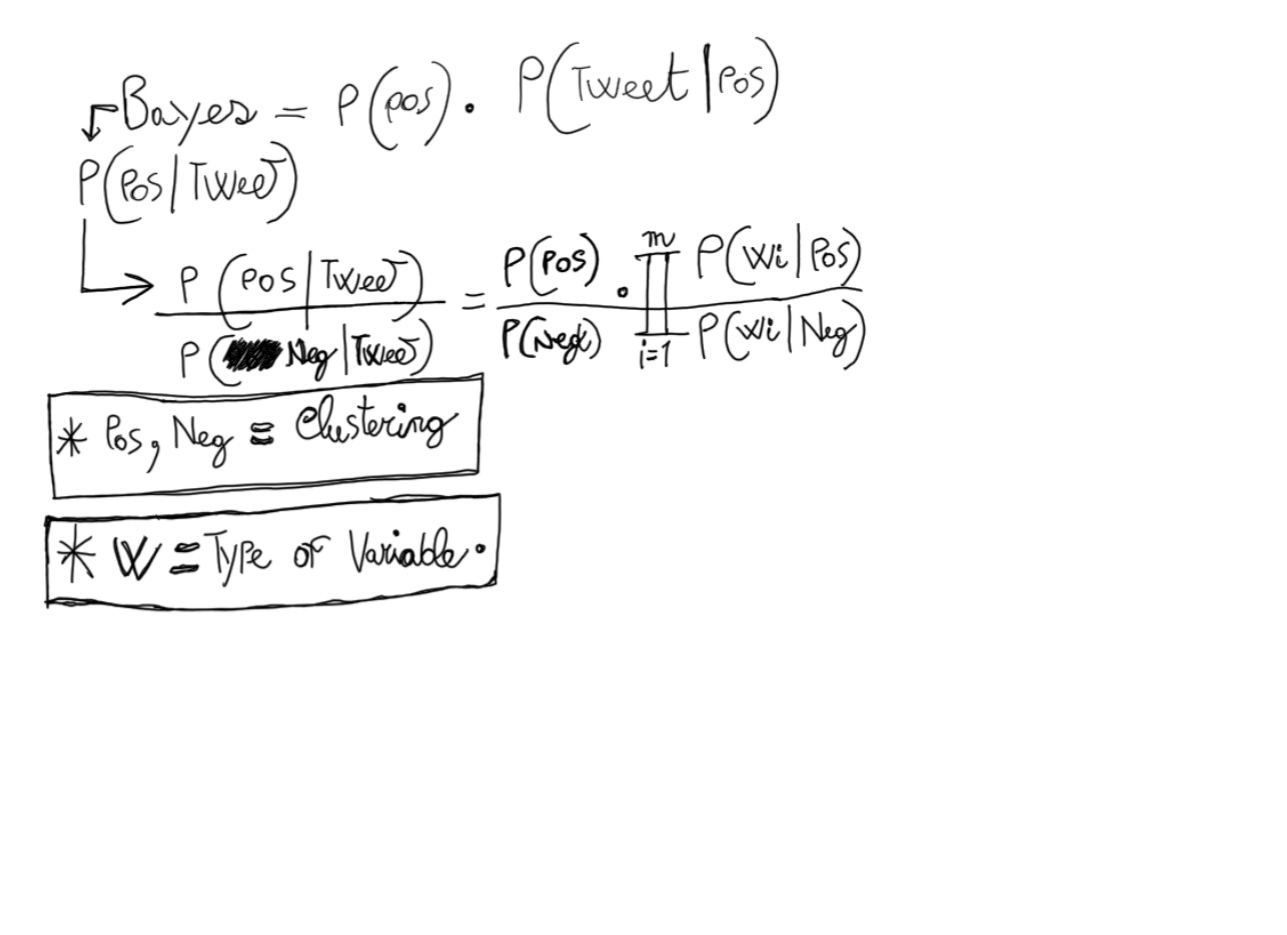 Bayes = P(pos) . P(Tweet | Pos)
P(Pos | Tweet)
P(Pos | Tweet) / P(Neg | Tweet) = P(Pos) / P(Neg) . ∏ m i=1 P(Wi | Pos) / P(Wi | Neg)
* Pos, Neg = Clustering
* W = Type of Variable.